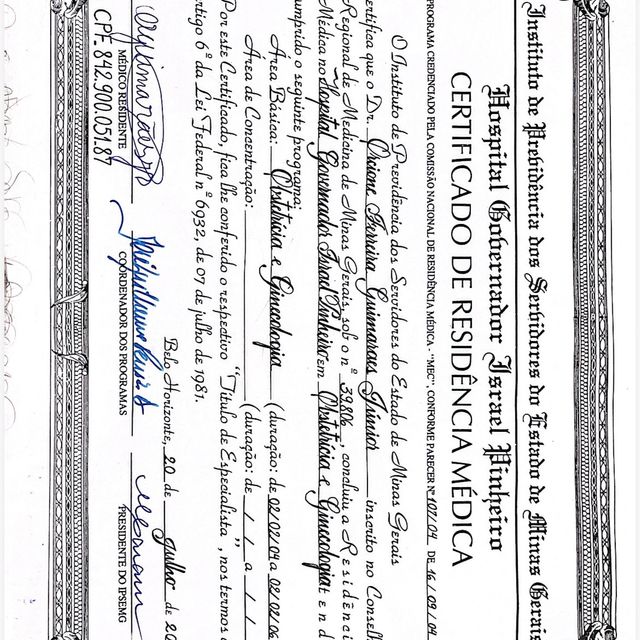 Instituto de Previdência dos Servidores do Estado de Minas Gerais
Hospital Governador Israel Pinheiro
CERTIFICADO DE RESIDÊNCIA MÉDICA
PROGRAMA CREDENCIADO PELA COMISSÃO NACIONAL DE RESIDÊNCIA MÉDICA - "MEC", CONFORME PARECER Nº 107/04 DE 16/09/04
O Instituto de Previdência dos Servidores do Estado de Minas Gerais
ertifica que o Dr. Orione Ferreira Guimaraes Júnior inscrito no Consell
Regional de Medicina de Minas Gerais, sob o nº 39806, concluiu a Residênci
Médica no Hospital Governador Israel Pinheiro em Obstetrícia e Ginecologia tend
umprido o seguinte programa:
Área Básica: Obstetrícia e Ginecologia (duração: de 02/02/04 a 02/02/06
Área de Concentração: (duração: de / / a / /
Por este Certificado, fica lhe conferido o respectivo "Título de Especialista", nos termos
rtigo 6º da Lei Federal nº 6932, de 07 de julho de 1981.
Belo Horizonte, 20 de julho de 20
MÉDICO RESIDENTE COORDENADOR DOS PROGRAMAS PRESIDENTE DO IPSEMG
CPF. 842.900.051.87